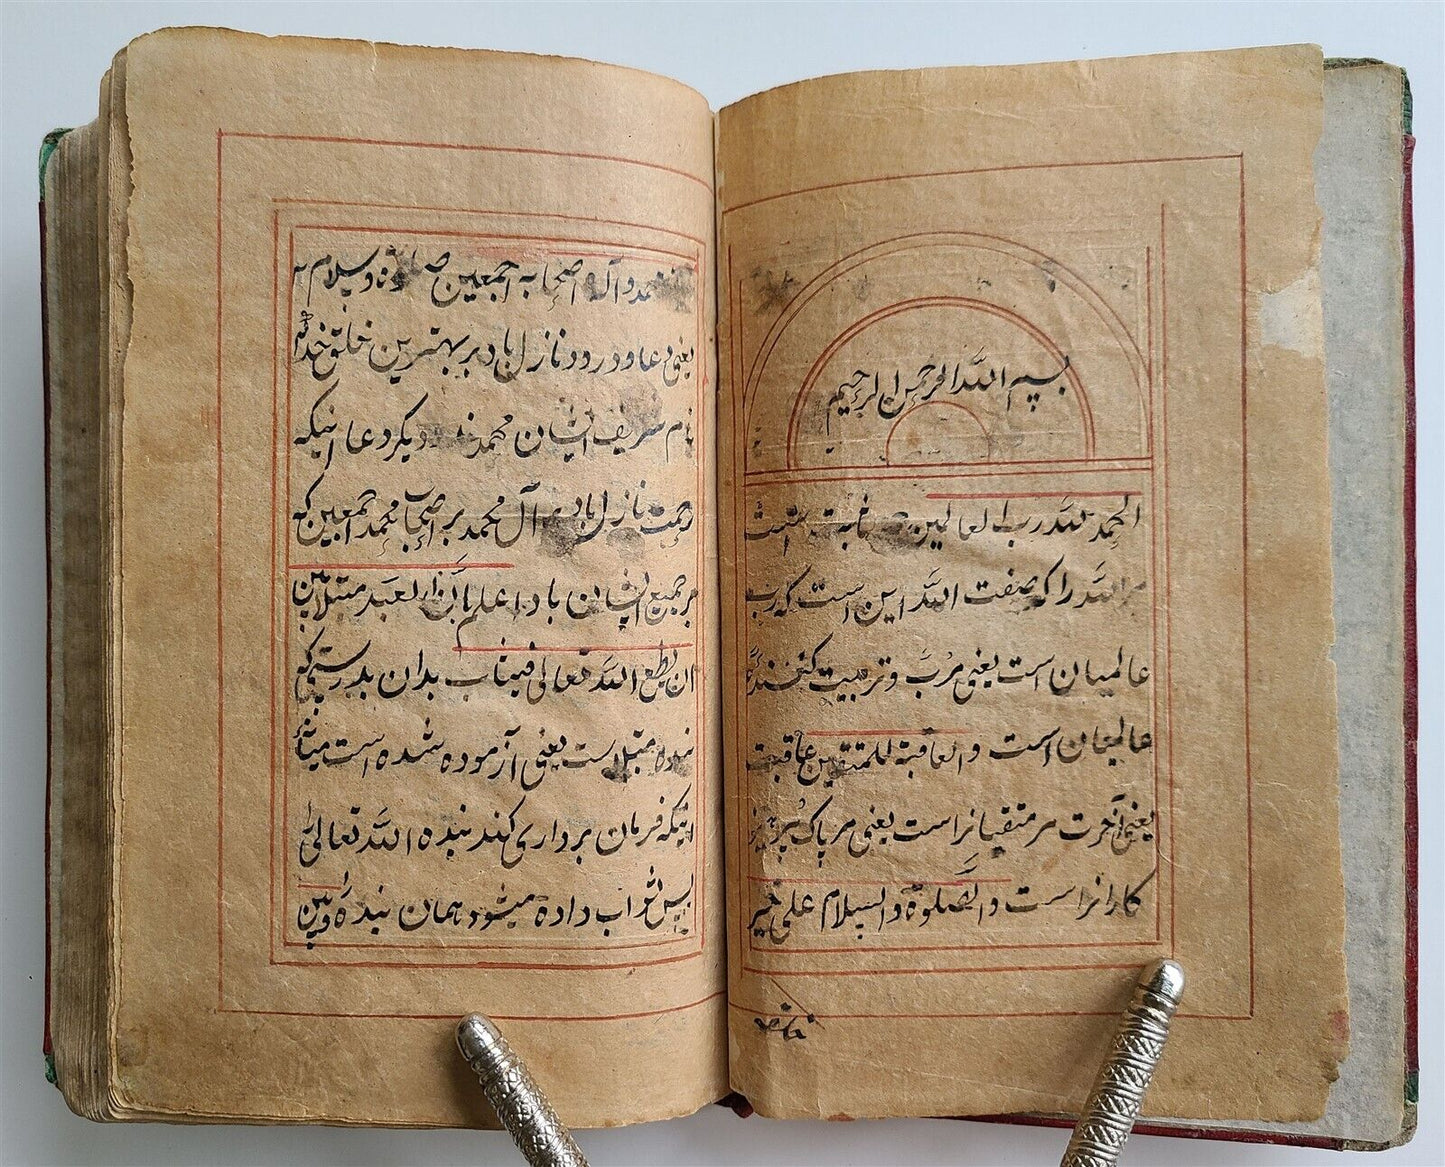 بسم الله الرحمن الرحیم
الحمد لله رب العالمین
مر الله را که صفت الله این است که رب
عالمیان است یعنی مربّ و تربیت کننده
عالمیان است والعاقبة للمتقین عاقبت
یعنی آخرت مر متقیانراست یعنی مر پاک پرهیز
کارانراست والصلوة والسلام علی خیر
محمد و آله اصحابه اجمعین صلوة و سلام
یعنی دعا و درود نازل باد بر بهترین خلق خدا که
نام شریف ایشان محمد دیگر دعا اینکه
رحمت نازل باد بر آل محمد بر اصحاب محمد اجمعین که
بر جمیع ایشان باد اعلم بان العبد مبتلا بین
ان یطیع الله تعالی فیثاب بدان بدرستی که
بنده مبتلاست یعنی آزموده شده است میان
اینکه فرمان برداری کند بنده الله تعالی را
پس ثواب داده میشود همان بنده و بین